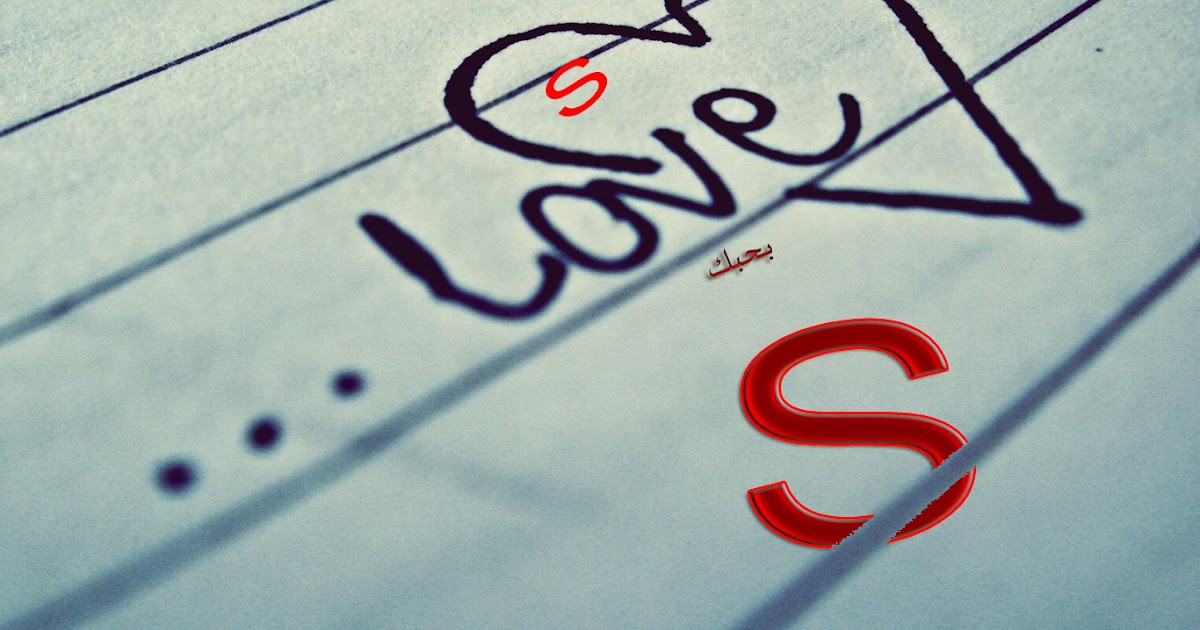 S
Love
بحبك
S
...